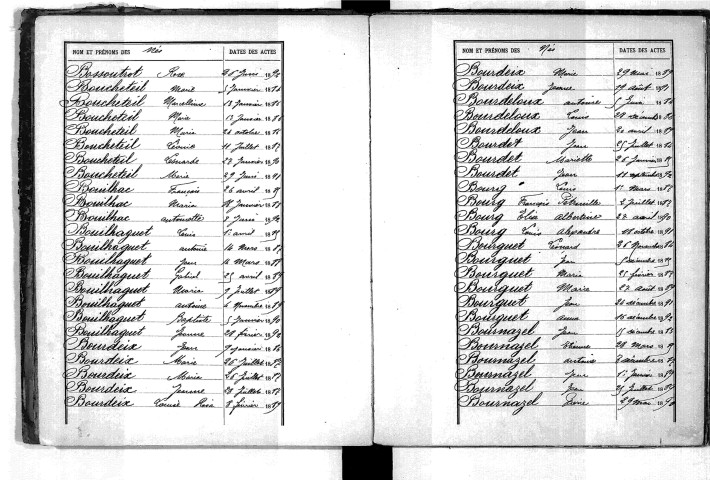 NOM ET PRÉNOMS DES Nés DATES DES ACTES
Bossoutrot Rose 26 Juin 1890
Boucheteil Marie 5 Janvier 188
Boucheteil Marcelline 13 Janvier 188
Boucheteil Marie 13 Janvier 188
Boucheteil Marie 26 octobre 188
Boucheteil Léonie 11 Juillet 1887
Boucheteil Léonarde 22 Janvier 1890
Boucheteil Marie 29 Juin 1891
Bouilhac François 26 avril 18
Bouilhac Maria 18 Janvier 188
Bouilhac antoinette 8 Juin 189
Bouilhaguet Louis avril 1889
Bouilhaguet antoine 14 Mars 1887
Bouilhaguet Jean 16 Mars 1887
Bouilhaguet Gabriel 25 avril 1889
Bouilhaguet Maria 9 Juillet 1889
Bouilhaguet antoine Novembre 1889
Bouilhaguet Baptiste 5 Janvier 1890
Bouilhaguet Jeanne 20 février 1890
Bourdeix Jean 9 Janvier 188
Bourdeix Marie 26 Juillet 188
Bourdeix Maria 26 Juillet 1887
Bourdeix Jeanne 28 Juillet 1887
Bourdeix Louise Rosa 8 février 1889
NOM ET PRÉNOMS DES Nés DATES DES ACTES
Bourdeix Marie 29 Mars 1889
Bourdeix Jeanne 19 août 1891
Bourdeloux antoine 5 Juin 188
Bourdeloux Louis 28 décembre 188
Bourdeloux Jean 20 avril 1889
Bourdet Jean 25 Juillet 188
Bourdet Mariette 26 Janvier 18
Bourdet Jean 11 septembre 189
Bourg Louis 1 Mars 188
Bourg François Pétronille 2 Juillet 1887
Bourg Elia Albertine 22 avril 1890
Bourg Louis Alexandre 18 octobre 1891
Bourguet Léonard 26 Novembre 188
Bourguet Jean décembre 18
Bourguet Marie 25 février 1887
Bourguet Maria 23 août 1889
Bourguet Jean 26 décembre 1891
Bourguet anna 16 décembre 1892
Bournazel Jean 15 décembre 188
Bournazel Etienne 28 Mars 18
Bournazel antoine 2 décembre 188
Bournazel Jean 15 Janvier 188
Bournazel Jean 25 Juillet 1889
Bournazel Pierre 29 Mai 1890